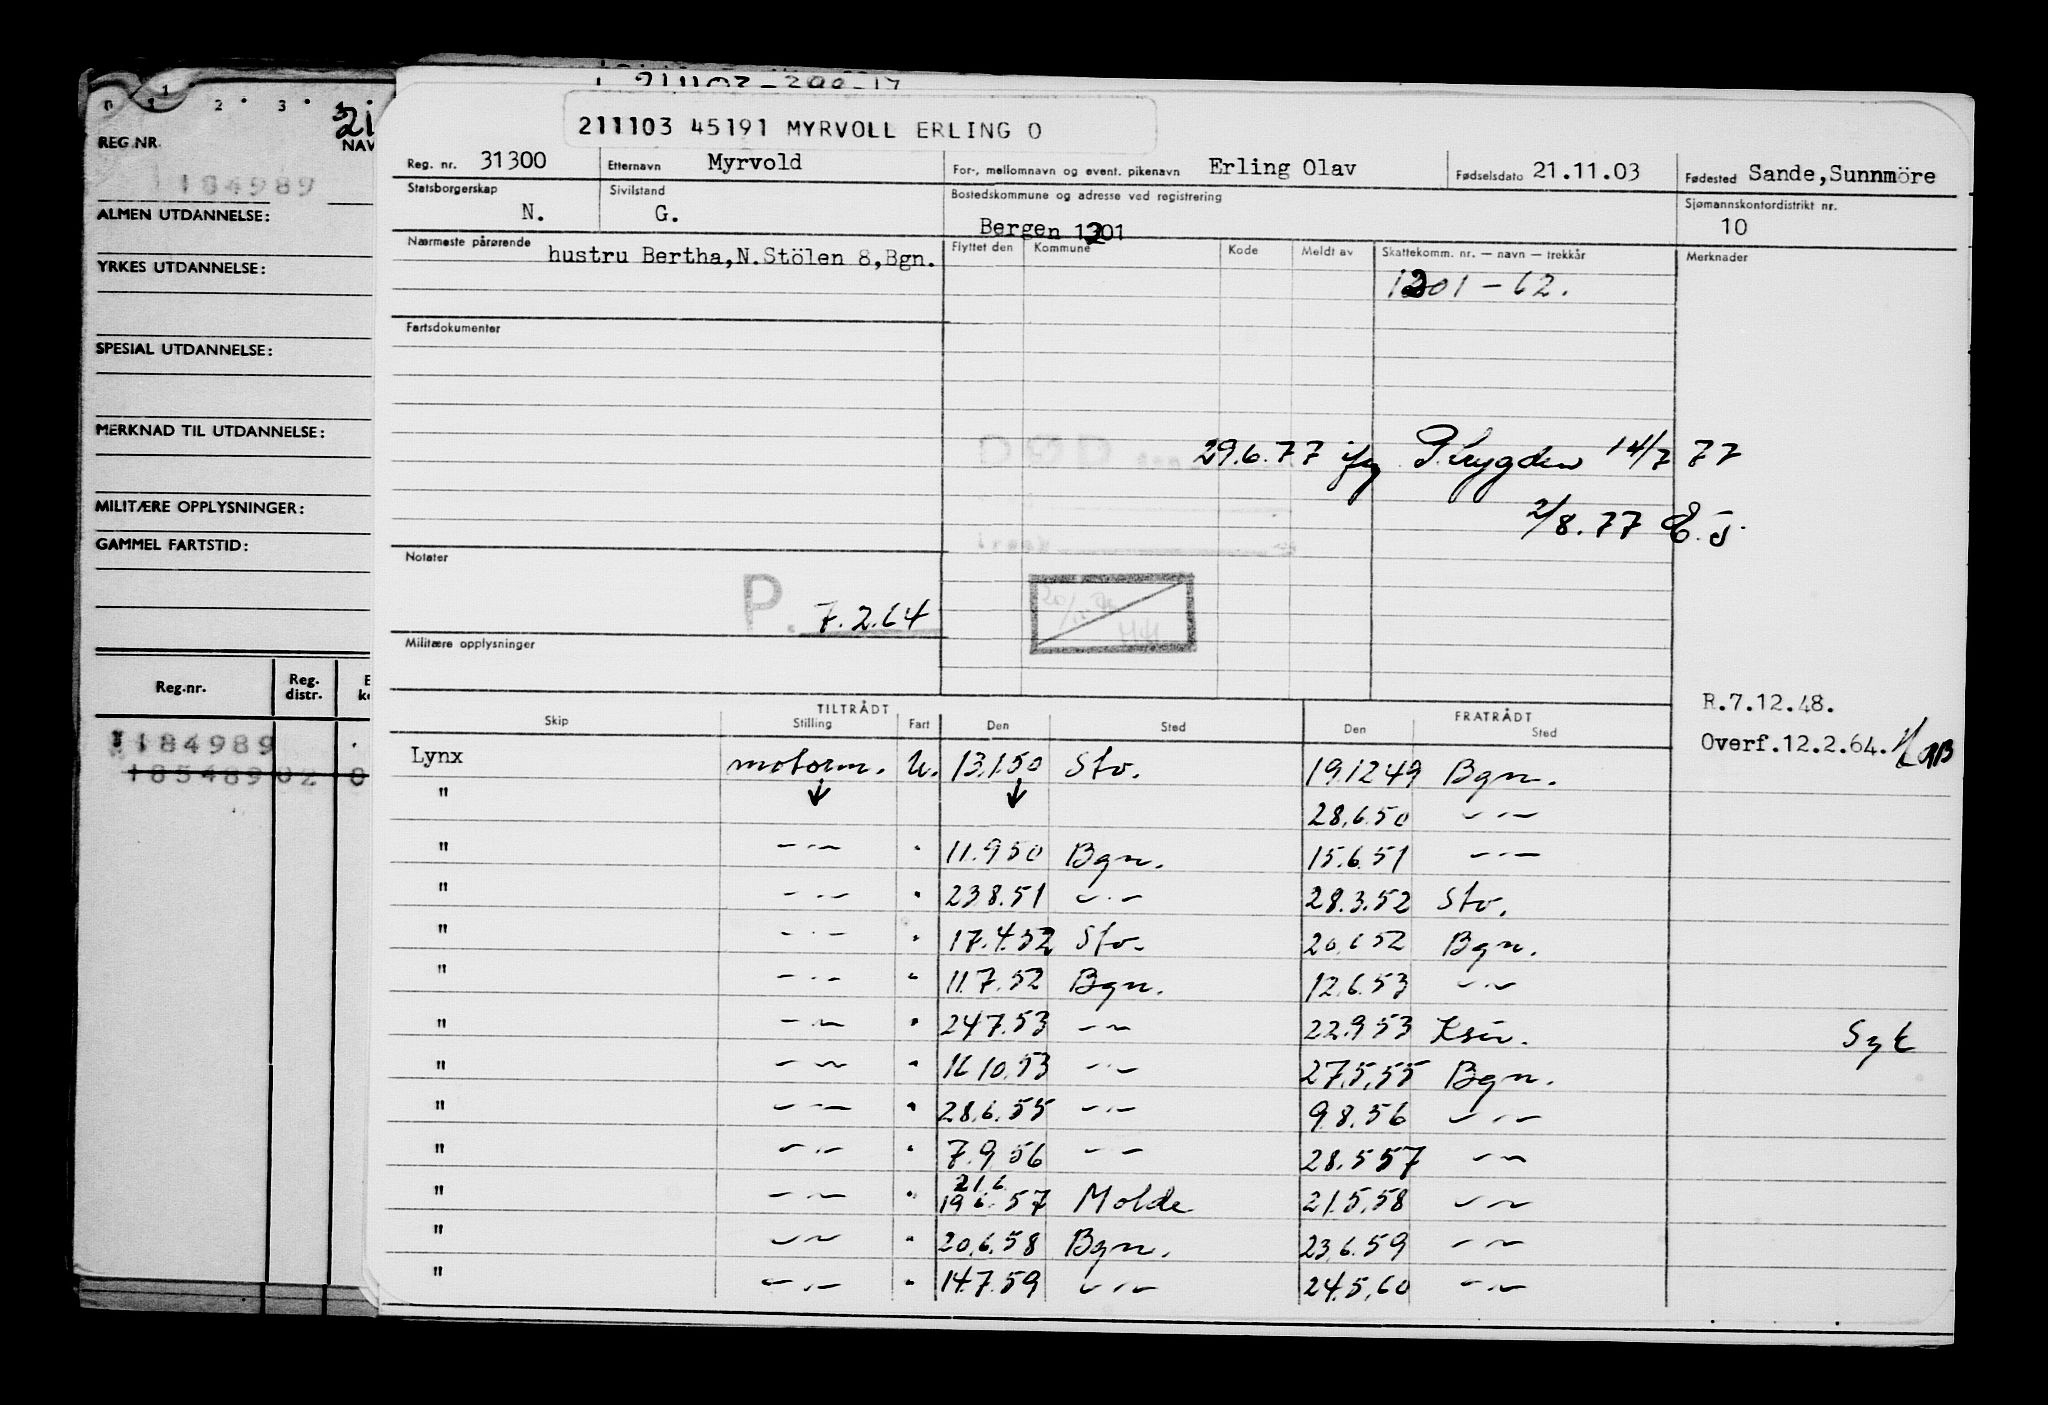 211103 45191 MYRVOLL ERLING O
Reg. nr. 31300 Etternavn Myrvold For-, mellomnavn og event. pikenavn Erling Olav Fødselsdato 21.11.03 Fødested Sande,Sunnmöre
Statsborgerskap N. Sivilstand G. Bostedskommune og adresse ved registrering Bergen 1201 Sjømannskontordistrikt nr. 10
Nærmeste pårørende hustru Bertha,N.Stölen 8,Bgn. Flyttet den Kommune Kode Meldt av Skattekomm. nr. — navn — trekkår Merknader
1201 - 62.
Fartsdokumenter
DØD 29.6.77 ifg P.trygden 14/7 77
2/8.77 E.J.
Notater
P. 7.2.64
Militære opplysninger
R.7.12.48.
Overf.12.2.64.
TILTRÅDT FRATRÅDT
Skip Stilling Fart Den Sted Den Sted
Lynx motorm. U. 13.1.50 Stv. 19.12.49 Bgn.
" ↓ ↓ 28.6.50 -"-
" -"- " 11.9.50 Bgn. 15.6.51 -"-
" -"- " 23.8.51 -"- 28.3.52 Stv.
" -"- " 17.4.52 Stv. 20.6.52 Bgn.
" -"- " 11.7.52 Bgn. 12.6.53 -"-
" -"- " 24.7.53 -"- 22.9.53 Ksu. Syk
" -"- " 16.10.53 -"- 27.5.55 Bgn.
" -"- " 28.6.55 -"- 9.8.56 -"-
" -"- " 7.9.56 -"- 28.5.57 -"-
21.6
" -"- " 19.6.57 Molde 21.5.58 -"-
" -"- " 20.6.58 Bgn. 23.6.59 -"-
" -"- " 14.7.59 -"- 24.5.60 -"-
0 1 2 3
REG.NR. NAV
184989
ALMEN UTDANNELSE:
YRKES UTDANNELSE:
SPESIAL UTDANNELSE:
MERKNAD TIL UTDANNELSE:
MILITÆRE OPPLYSNINGER:
GAMMEL FARTSTID:
Reg.nr. Reg. distr.
184989
185489 02 0